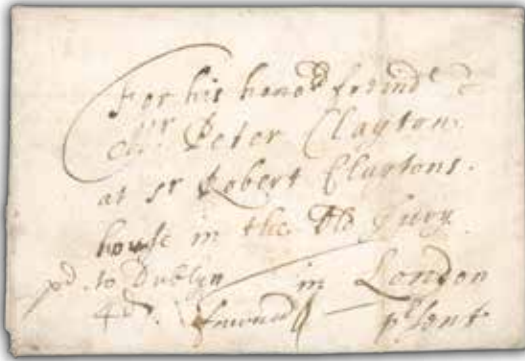 For his honod freind
Mr. Peter Clayton.
at sr Robert Claytons.
house in the Old Jury
pd. to Dublyn in London
4d. prsent